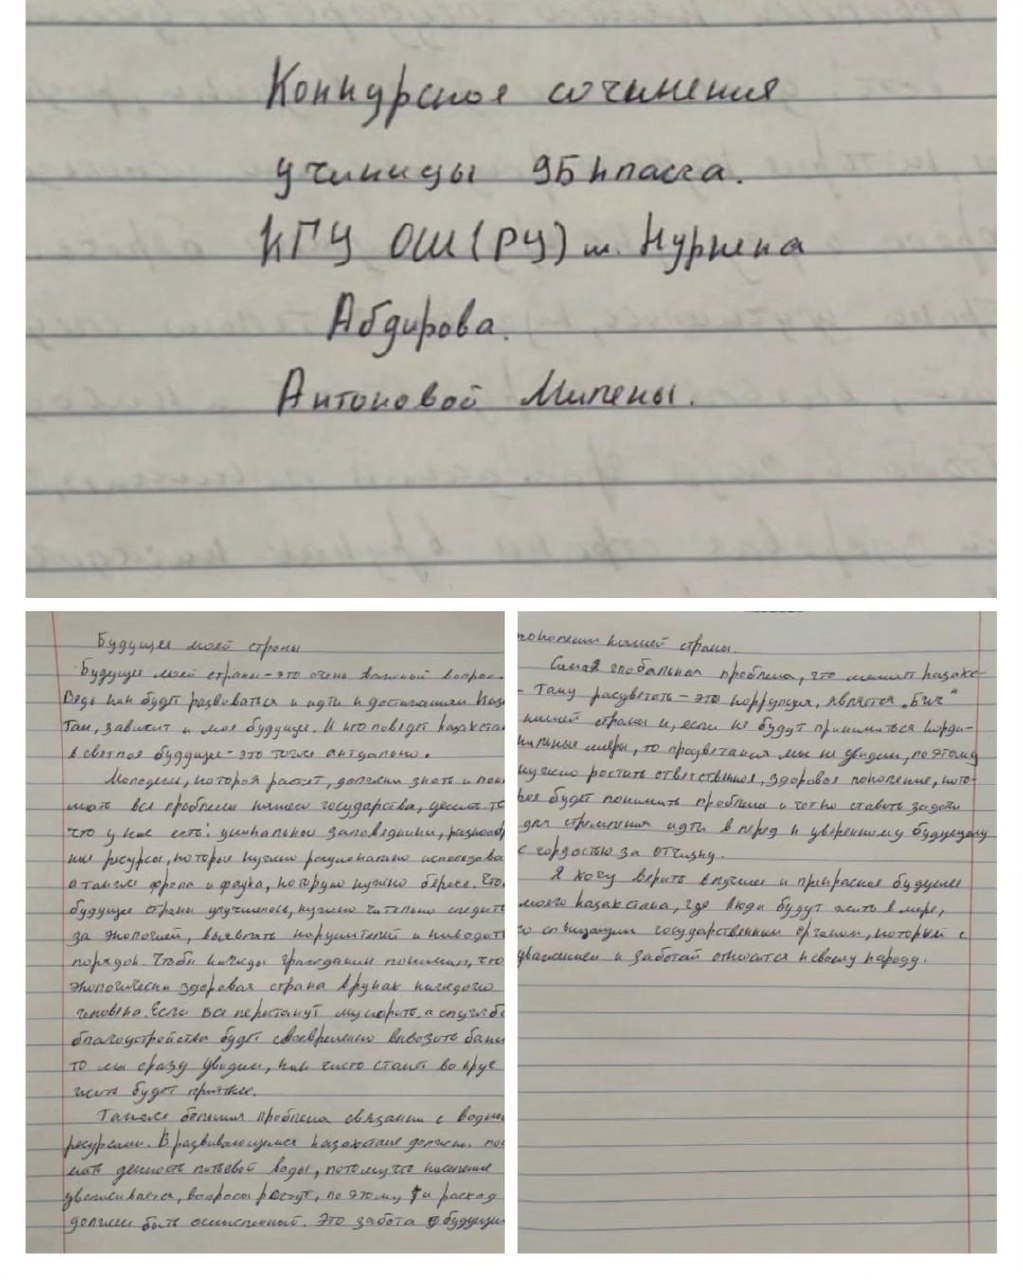 Конкурсное сочинения
ученицы 9Б класса.
КГУ ОШ(РУ) и. Нуркена
Абдирова.
Антоновой Милены.
Будущее моей страны
Будущее моей страны - это очень важный вопрос.
Ведь как будет развиваться и идти к достижениям
Там, зависит и мое будущее. И кто поведет Казахстан
в светлое будущее - это тоже актуально.
Молодежь, которая растет, должна знать и
мать все проблемы нашего государства, ценить
что у нас есть: уникальные заповедники,
ные ресурсы, которые нужно рационально
а также флора и фауна, которую нужно беречь.
будущее страны улучшилось, нужно тательно следить
за экологией, выявлять нарушителей и наводить
порядок. Чтобы каждый гражданин понимал, что
экологически здоровая страна в руках каждого
человека. Если все перестанут мусорить, а
благоустройства будет своевременно вывозить
то мы сразу увидим, как чисто станет во круг
жить будет приятнее.
Также большая проблема связанна с
ресурсами. В развивающемся Казахстане должно
мать ценность питьевой воды, потому что население
увеличивается, вопросы растут, по этому и расход
должен быть осмысленный. Это забота о будущем
поколении нашей страны.
Самая глобальная проблема, что мешает Казахс-
- тану расцветать - это коррупция, является "Бич"
нашей страны и, если не будут приниматься карди-
нальные меры, то процветания мы не увидим, по этому
нужно ростить ответственное, здоровое поколение, кото-
рое будет понимать проблемы и четко ставить задачи
для стремления идти в перед к уверенному будущему
с гордостью за отчизну.
Я хочу верить в лучшее и прекрасное будущее
моего Казахстана, где люди будут жить в мире,
со государственным органом, который с
уважением и заботай относится к своему народу.